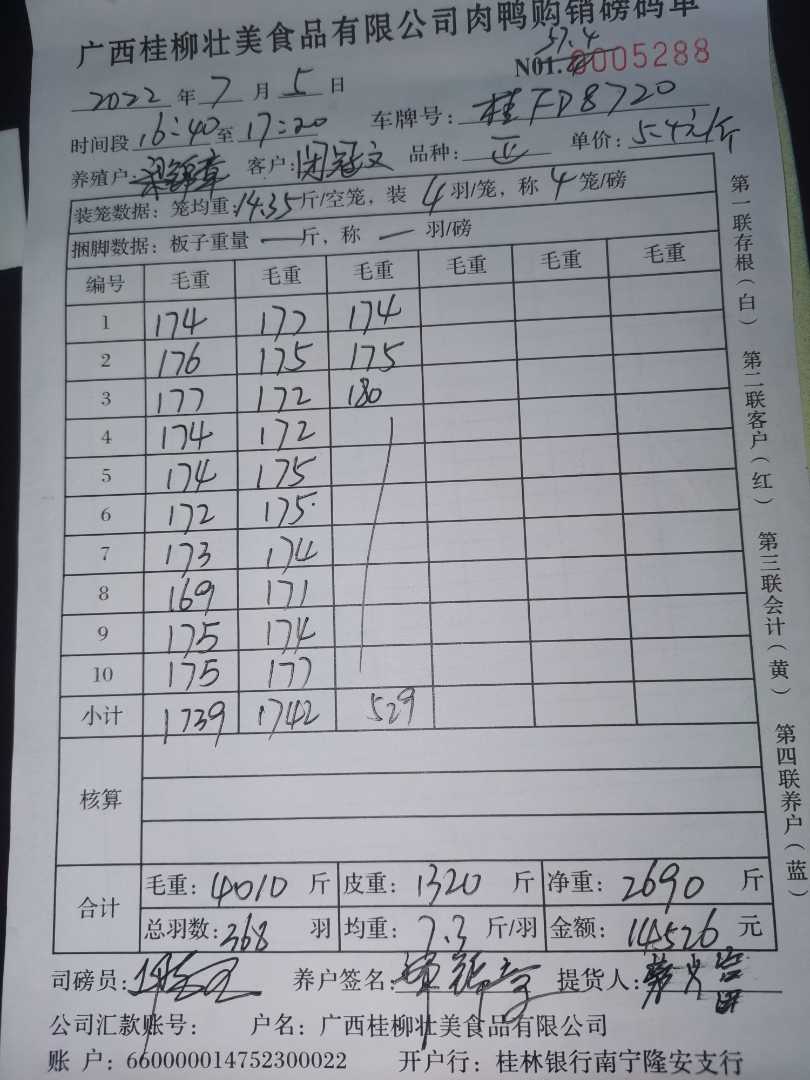 广西桂柳壮美食品有限公司肉鸭购销磅码单
57.4
N01. 0005288
2022年7月5日
时间段16:40至17:20 车牌号:桂FD8720
养殖户:梁锦章 客户:闭冠文 品种: 单价:5.4元/斤
装笼数据:笼均重:14.35斤/空笼,装4羽/笼,称4笼/磅
捆脚数据:板子重量一斤,称一羽/磅
编号 毛重 毛重 毛重 毛重 毛重 毛重
1 174 177 174
2 176 175 175
3 177 172 180
4 174 172
5 174 175
6 172 175
7 173 174
8 169 171
9 175 174
10 175 177
小计 1739 1742 529
核算
合计 毛重:4010斤 皮重:1320斤 净重:2690斤
总羽数:368羽 均重:7.3斤/羽 金额:14526元
司磅员: 养户签名: 提货人:
公司汇款账号: 户名:广西桂柳壮美食品有限公司
账 户:660000014752300022 开户行:桂林银行南宁隆安支行
第一联存根(白) 第二联客户(红) 第三联会计(黄) 第四联养户(蓝)